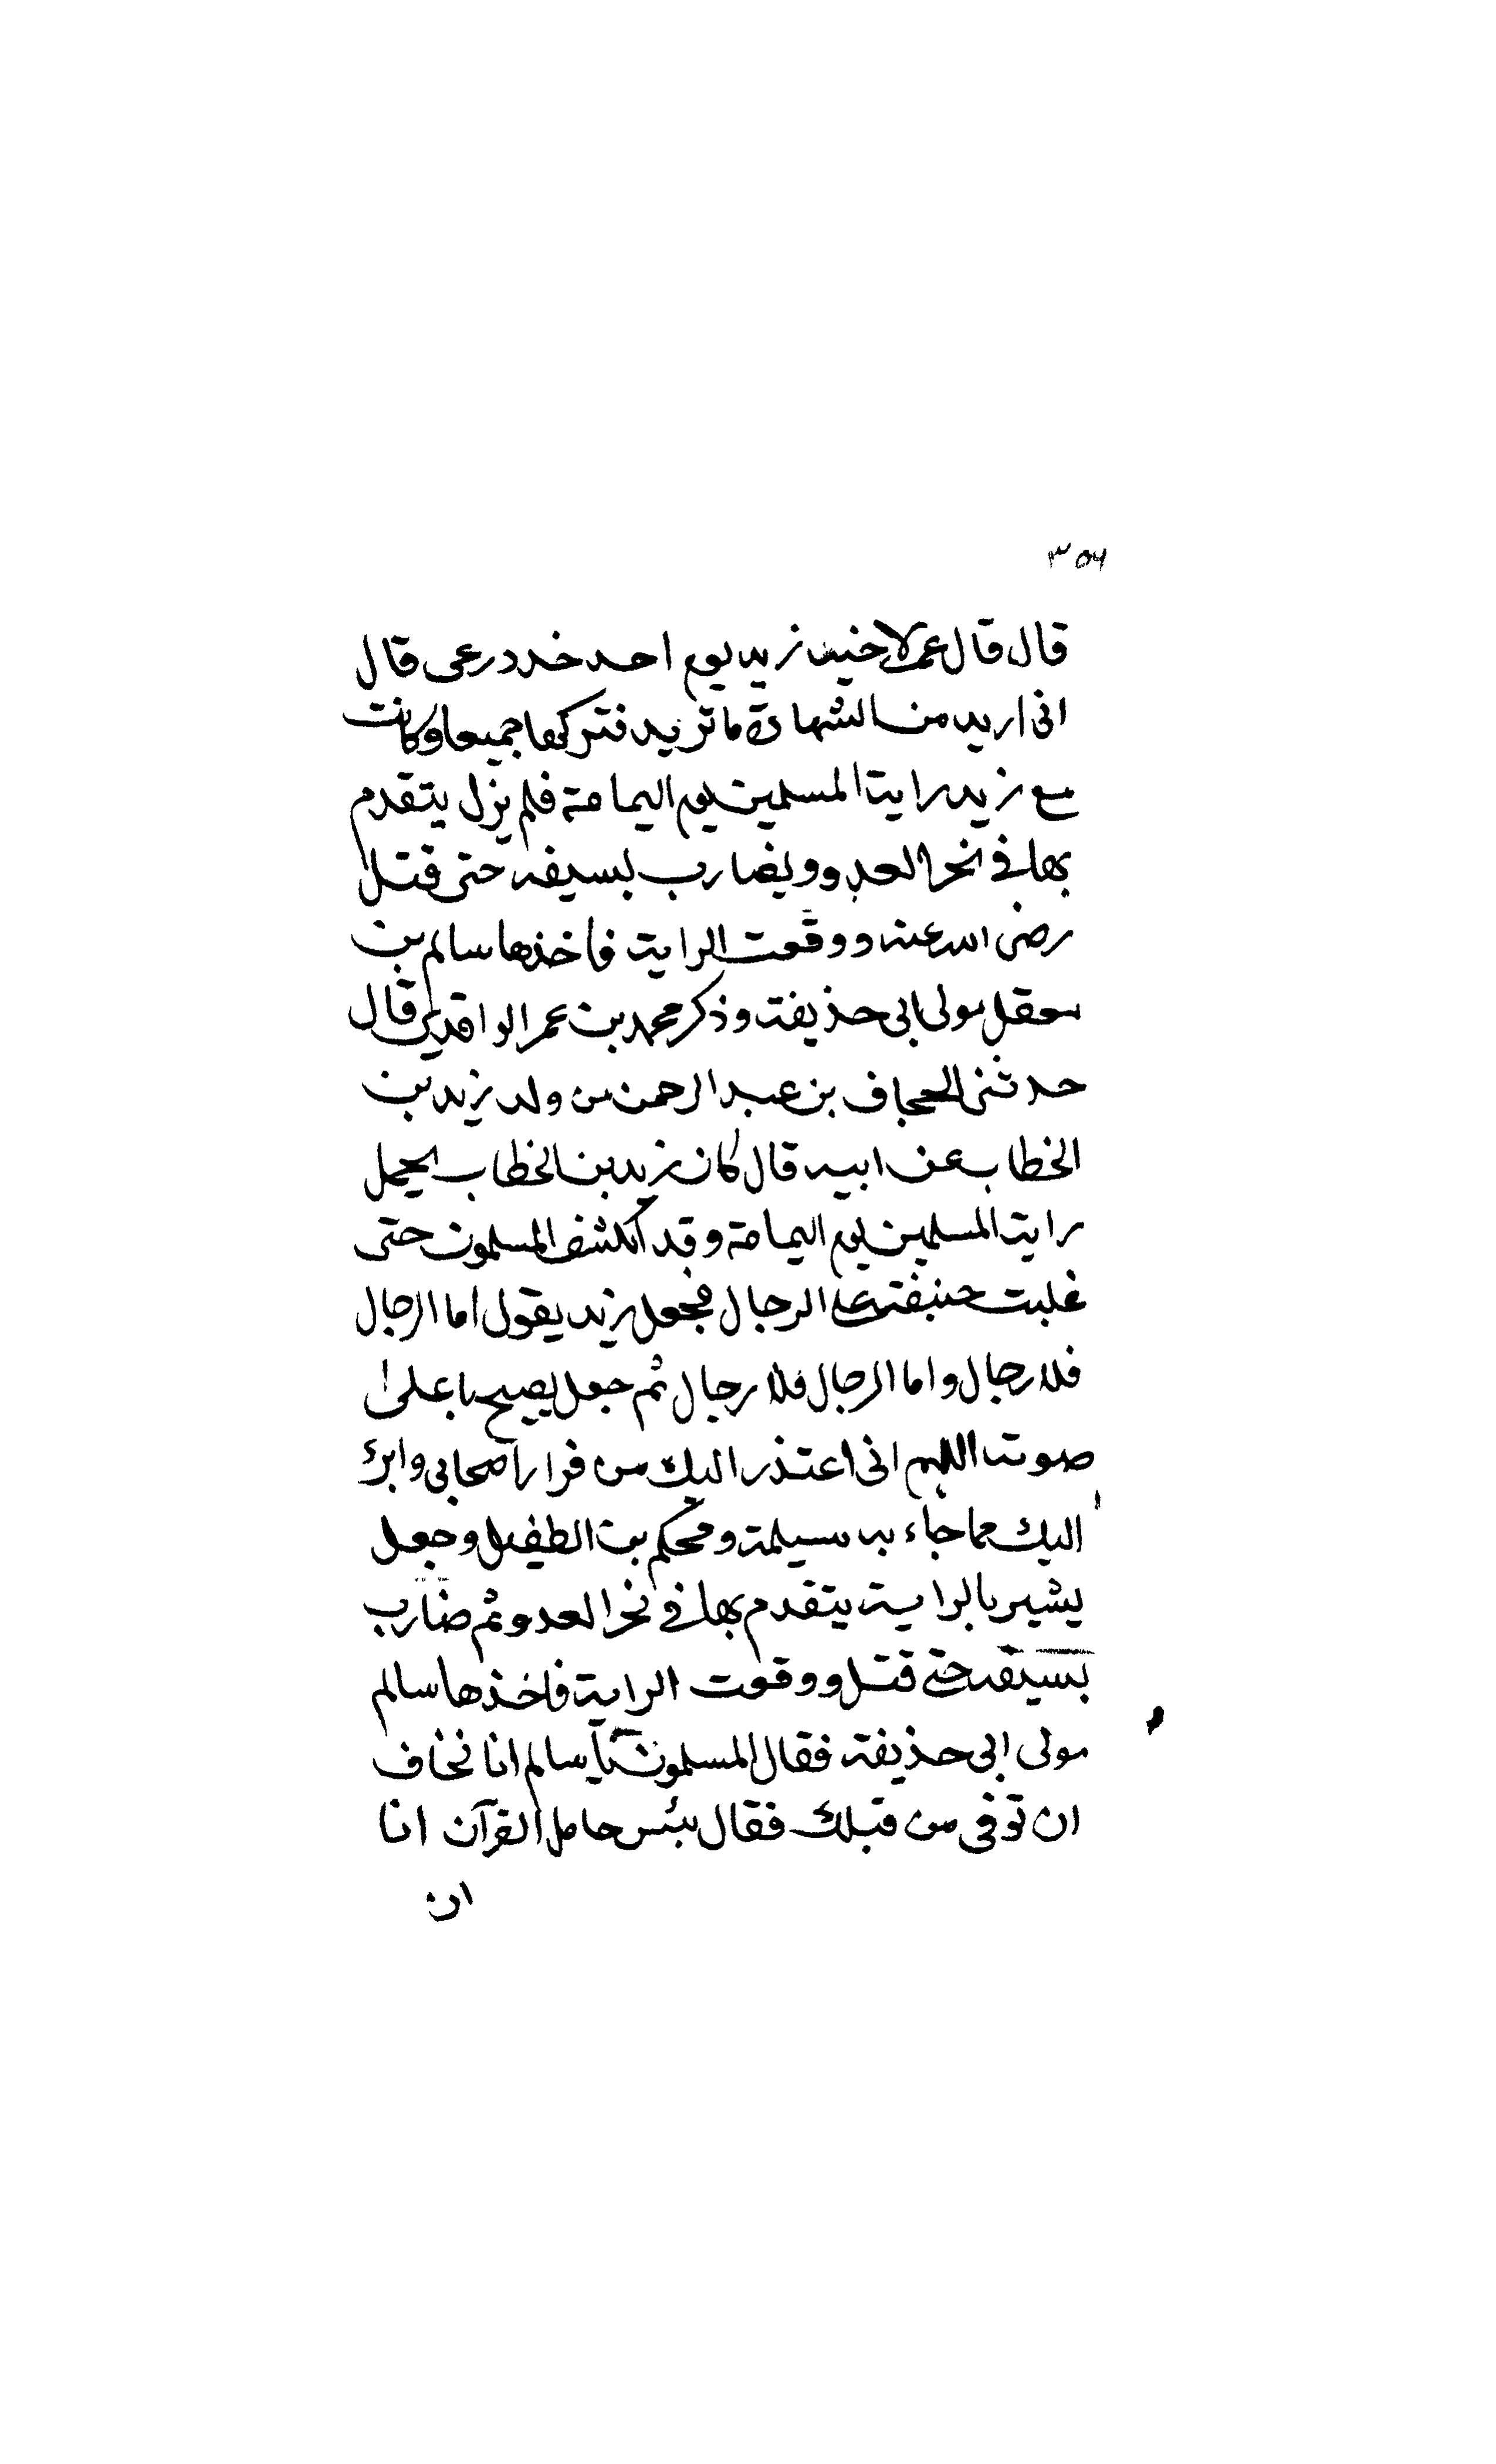 ٣٥٦
قال قال عمر لاخيه زيد يوم احد خذ درعى قال
انى اريد من الشهادة ما تريد فتركها جميعا وكانت
مع زيد راية المسلمين يوم اليمامة فلم يزل يتقدم
بها فى نحر العدو ويضارب بسيفه حتى قتل
رضى الله عنه ووقعت الراية فاخذها سالم بن
معقل مولى ابى حذيفة وذكر محمد بن عمر الواقدى قال
حدثنى الحجاف بن عبد الرحمن من ولد زيد بن
الخطاب عن ابيه قال كان زيد بن الخطاب يحمل
راية المسلمين يوم اليمامة وقد انكشف المسلمون حتى
غلبت حنيفة على الرجال فجعل زيد يقول اما الرجال
فلا رجال واما الرجال فلا رجال ثم جعل يصيح باعلى
صوته اللهم انى اعتذر اليك من فرار اصحابى وابرئ
اليك مما جاء به مسيلمة ومحكم بن الطفيل وجعل
يشير بالراية يتقدم بها فى نحر العدو ثم ضارب
بسيفه حتى قتل ووقعت الراية فاخذها سالم
مولى ابى حذيفة فقال المسلمون يا سالم انا نخاف
ان توفى من قبلك فقال بئس حامل القرآن انا
ان